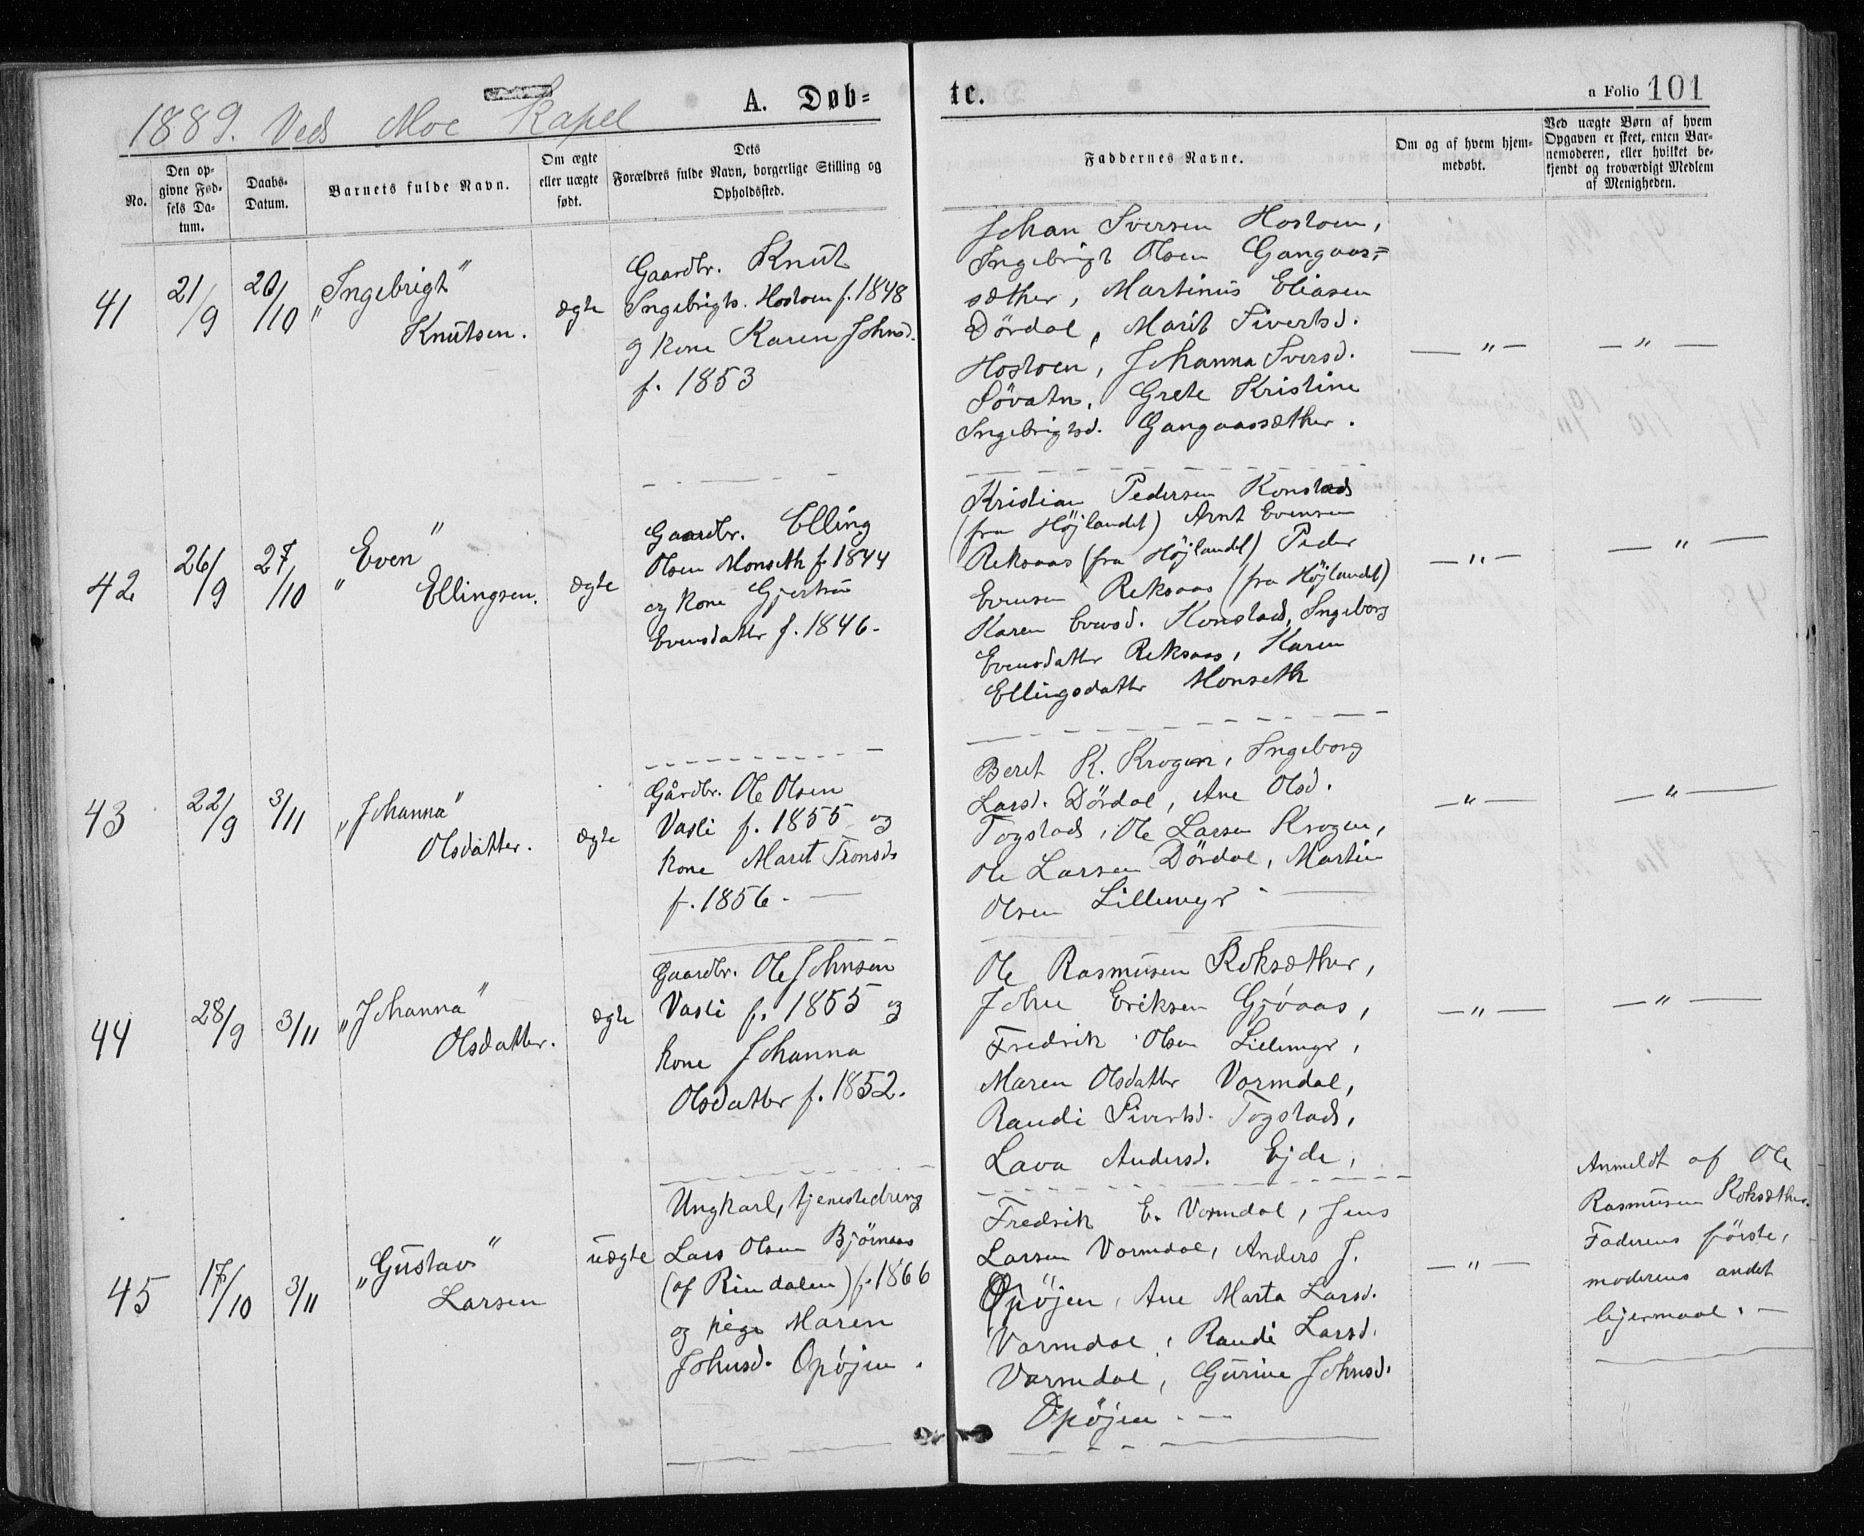 1889. Veds Moe Kapel
A. Døb=
te.
a Folio 101
No.
Den op-
givne Fød-
sels Da-
tum.
Daabs-
Datum.
Barnets fulde Navn.
Om ægte
eller uægte
født.
Dets
Forældres fulde Navn, borgerlige Stilling og
Opholdssted.
Faddernes Navne.
Om og af hvem hjem-
medøbt.
Ved uægte Børn af hvem
Opgaven er skeet, enten Bar-
nemoderen, eller hvilket be-
kjendt og troværdigt Medlem
af Menigheden.
41
21/9
20/10
"Ingebrigt"
Knutsen.
ægte
Gaardbr. Knut
Ingebrigts. Hostoen f. 1848
og kone Karen Johnsd.
f. 1853
Johan Iversen Hostoen,
Ingebrigt Olsen Gangaas=
sæther, Martinus Eliasen
Dördal, Marit Sivertsd.
Hostoen, Johanna Iversd.
Søvatn, Grete Kristine
Ingebrigtsd. Gangaassæther.
— " —
— " —
42
26/9
27/10
"Even"
Ellingsen.
ægte
Gaardbr. Elling
Olsen Monseth f. 1844
og kone Gjertrü
Evensdatter f. 1846.
Kristian Pedersen Konstads
(fra Höjlandet) Arnt Evensen
Reksaas (fra Höjlandet) Peder
Evensen Reksaas (fra Höjlandet)
Karen Evensd. Konstads, Ingeborg
Evensdatter Reksaas, Karen
Ellingsdatter Monseth
— " —
— " —
43
22/9
3/11
"Johanna"
Olsdatter.
ægte
Gårdbr. Ole Olsen
Vasli f. 1855 og
kone Marit Tronsds
f. 1856.
Beret K. Krogen, Ingeborg
Larsd. Dördal, Ane Olsd.
Togstads, Ole Larsen Krogen,
Ole Larsen Dördal, Martin
Olsen Lillemyr
— " —
— " —
44
28/9
3/11
"Johanna"
Olsdatter.
ægte
Gaardbr. Ole Johnsen
Vasli f. 1855 og
kone Johanna
Olsdatter f. 1852.
Ole Rasmusen Roksæther,
John Eriksen Gjöaas,
Fredrik Olsen Lillemyr,
Maren Olsdatter Vormdal,
Randi Sivertsd. Togstads,
Lava Andersd. Ejde,
— " —
— " —
45
17/10
3/11
"Gustav"
Larsen
uægte
Ungkarl, tjenestedreng
Lars Olsen Bjørnaas
(af Rindalen) f. 1866
og pige Maren
Johnsd. Opøjen.
Fredrik E. Vormdal, Jens
Larsen Vormdal, Anders J.
Opøjen, Ane Marta Larsd.
Vormdal, Randi Larsd.
Vormdal, Gurine Johnsd.
Opøjen
— " —
Anmeldt af Ole
Rasmusen Roksæther.
Faderens første,
moderens andet
lejermaal.